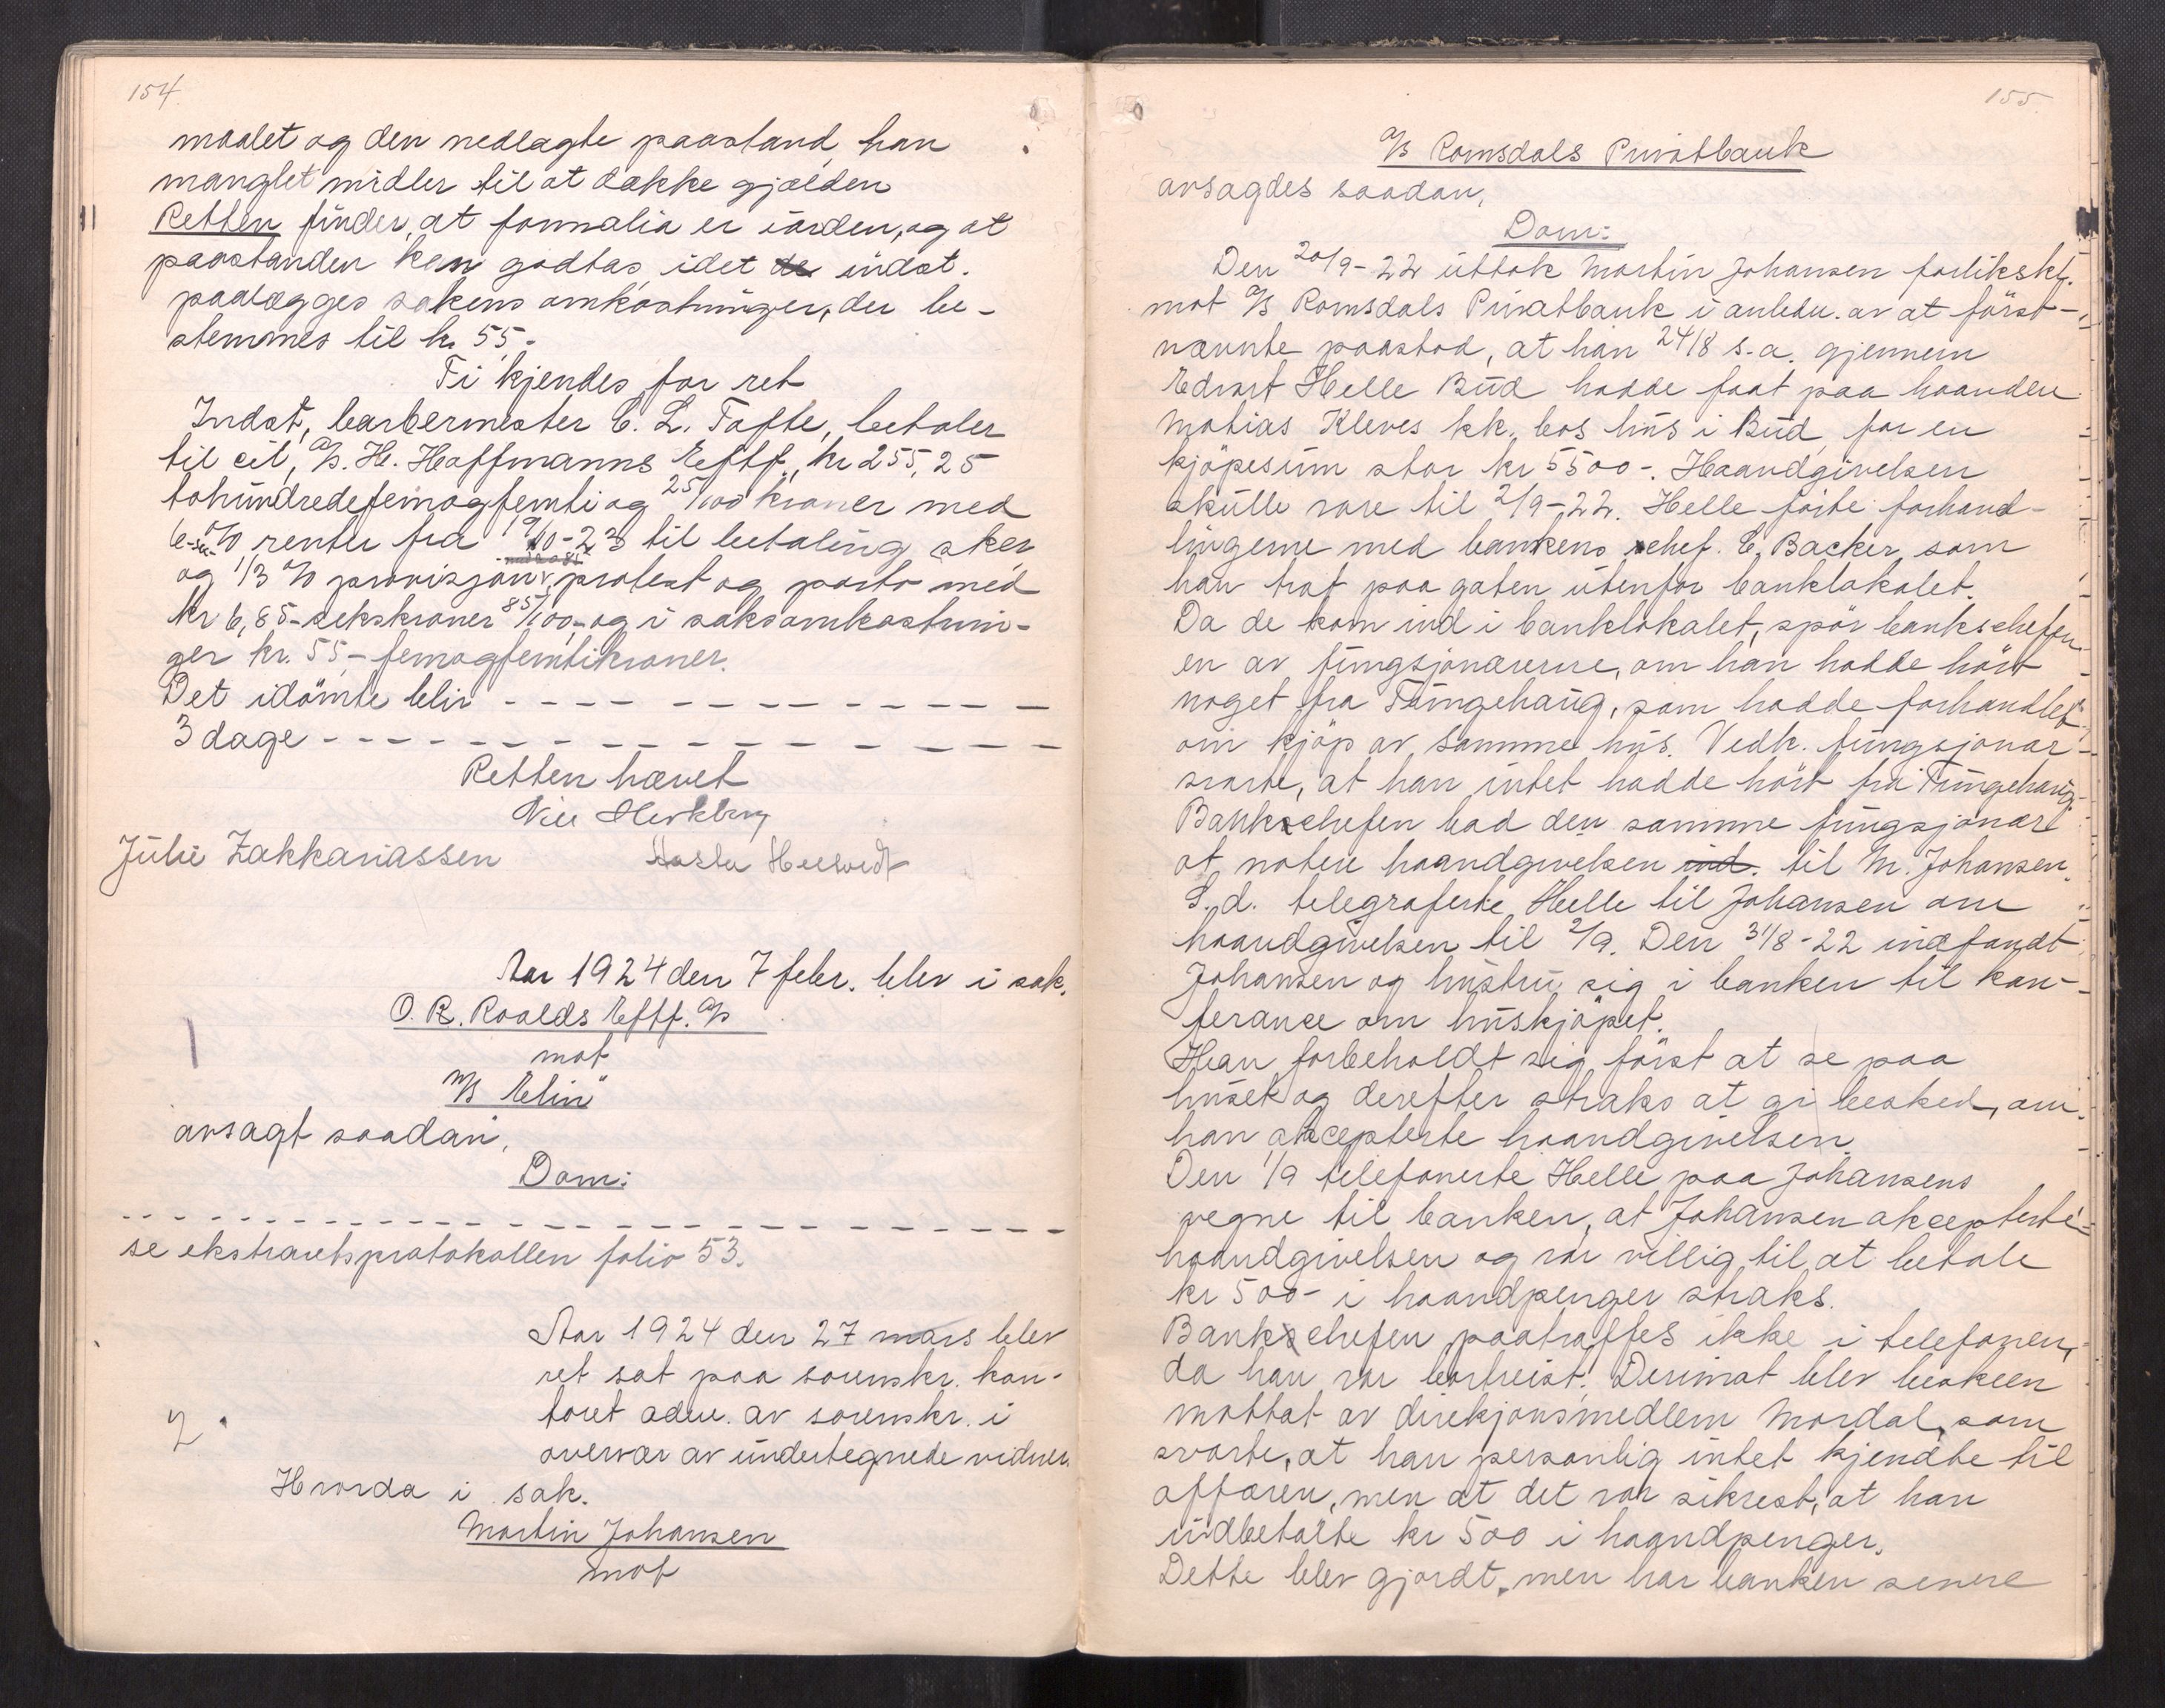 154.
maalet og den nedlagte paastand, han
manglet midler til at dække gjælden
Retten finder, at formalia er iorden, og at
paastanden kan godtas, idet de indst.
paalægges sakens omkostninger, der be-
stemmes til kr 55.-
Ti kjendes for ret
Indst, barbermester C. L. Tofte, betaler
til cit, A/S. H. Hoffmanns Eftf., kr 255,25
tohundredefemogfemti og 25/100 kroner med
6-seks-% renter fra 19/10-23 til betaling sker
og 1/3 % provisjon, protest og porto med
kr 6,85- sekskroner 85/100,- og i saksomkostnin-
ger kr. 55,- femogfemtikroner.
Det idömte blir - - - - - - - - - - - -
3 dage - - - - - - - - - - - - - - -
Retten hævet
Julie Zakkariassen
Aar 1924 den 7 febr. blev i sak.
O. R. Roalds Eftf. A/S
mot
M/S "Elin"
avsagt saadan,
Dom:
- - - - - - - - - - - - - - - - - - - -
se ekstraretsprotokollen folio 53.
Aar 1924 den 27 mars blev
ret sat paa sorenskr. kon-
toret adm. av sorenskr. i
overvær av undertegnede vidner.
2.
Hvorda i sak.
Martin Johansen
mot
155.
A/S Romsdals Privatbank
avsagdes saadan,
Dom:
Den 20/9-22 uttok Martin Johansen forliksKl.
mot A/S Romsdals Privatbank i anledn. av at först-
nævnte paastod, at han 24/8 s.a. gjennem
Edvart Helle Bud hadde faat paa haanden
Mathias Kleves kk. bos hus i Bud, for en
kjöpesum stor kr 5500-. Haandgivelsen
skulle vare til 2/9-22. Helle förte forhand-
lingerne med bankens chef. C. Backer, som
han traf paa gaten utenfor banklokalet.
Da de kom ind i banklokalet, spör bankscheffen
en av fungsjonærerne, om han hadde hört
noget fra Tungehaug, som hadde forhandlet
om kjöp av samme hus. Vedk. fungsjonær
svarte, at han intet hadde hört fra Tungehaug.
Bankchefen bad den samme fungsjonær
at notere haandgivelsen ind. til M. Johansen.
S.d. telegraferte Helle til Johansen om
haandgivelsen til 2/9. Den 31/8-22 indfandt
Johansen og hustru sig i banken til kon-
ferance om huskjöpet.
Han forbeholdt sig först at se paa
huset og derefter straks at gi besked, om
han akcepterte haandgivelsen.
Den 1/9 telefonerte Helle paa Johansens
vegne til banken, at Johansen akcepterte
haandgivelsen og var villig til at betale
kr 500- i haandpenger straks.
Bankchefen paatraffes ikke i telefonen,
da han var bortreist. Derimot blev beskeen
mottat av direkjonsmedlem Mordal, som
svarte, at han personlig intet kjendte til
affæren, men at det var sikrest, at han
indbetalte kr 500 i haandpenger.
Dette blev gjordt, men har banken senere